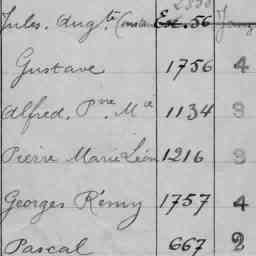 Jules. Augte Constant Ex. 56
Gustave 1756 4
Alfred. Pre. Me 1134 3
Pierre Marie Léon 1216 3
Georges Rémy 1757 4
Pascal 667 2